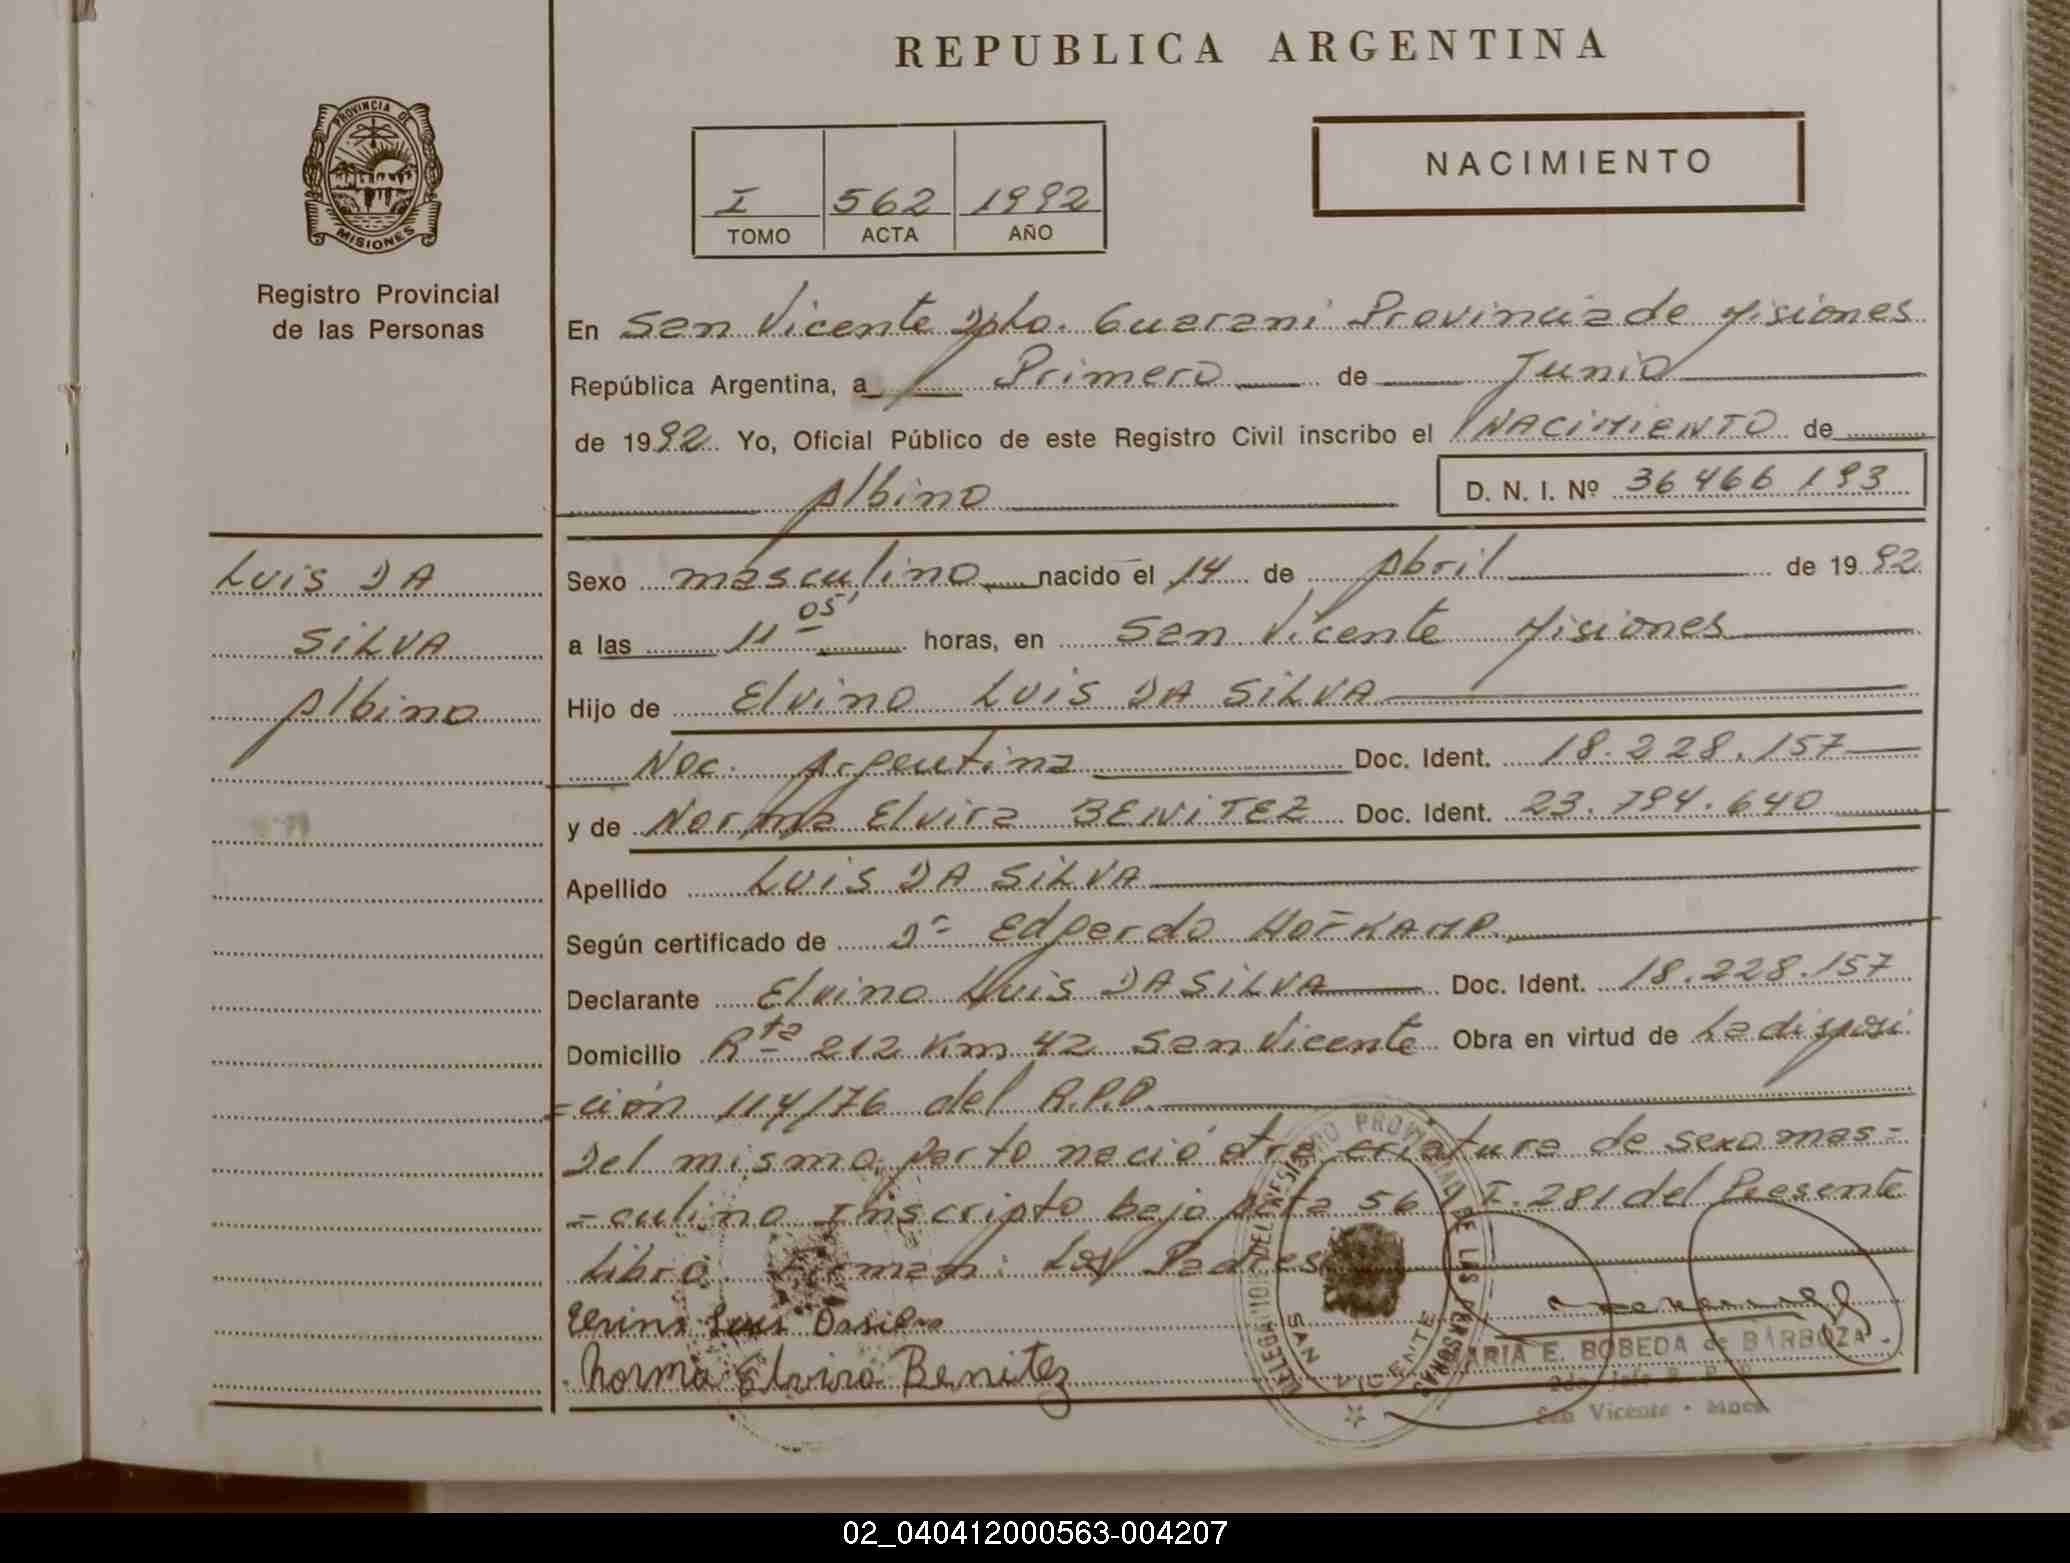 REPUBLICA ARGENTINA
PROVINCIA DE
MISIONES
Registro Provincial
de las Personas
I 562 1992
TOMO ACTA AÑO
NACIMIENTO
En San Vicente Dpto. Guarani Provincia de Misiones
República Argentina, a Primero de Junio
de 1992 Yo, Oficial Público de este Registro Civil inscribo el NACIMIENTO de
Albino D. N. I. Nº 36466193
LUIS DA
SILVA
Albino
Sexo masculino nacido el 14 de Abril de 1992
a las 11 05' horas, en San Vicente Misiones
Hijo de Elvino LUIS DA SILVA
Nac. Argentina Doc. Ident. 18.228.157
y de Norma Elvira BENITEZ Doc. Ident. 23.794.640
Apellido LUIS DA SILVA
Según certificado de Dr Edgardo HOFKAMP
Declarante Elvino Luis DA SILVA Doc. Ident. 18.228.157
Domicilio Rta 212 Km 42 San Vicente Obra en virtud de La disposi
=ción 114/76 del R.P.P.
Del mismo parto nació otra criatura de sexo mas=
=culino Inscripto bajo Acta 56 I. 281 del Presente
Libro Firman: Los Padres
Elvino Luis Dasilva
Norma Elvira Benitez
DELEGACION DEL REGISTRO PROVINCIAL DE LAS PERSONAS
SAN VICENTE
MARIA E. BOBEDA de BARBOZA
San Vicente - Mnes.
02_040412000563-004207